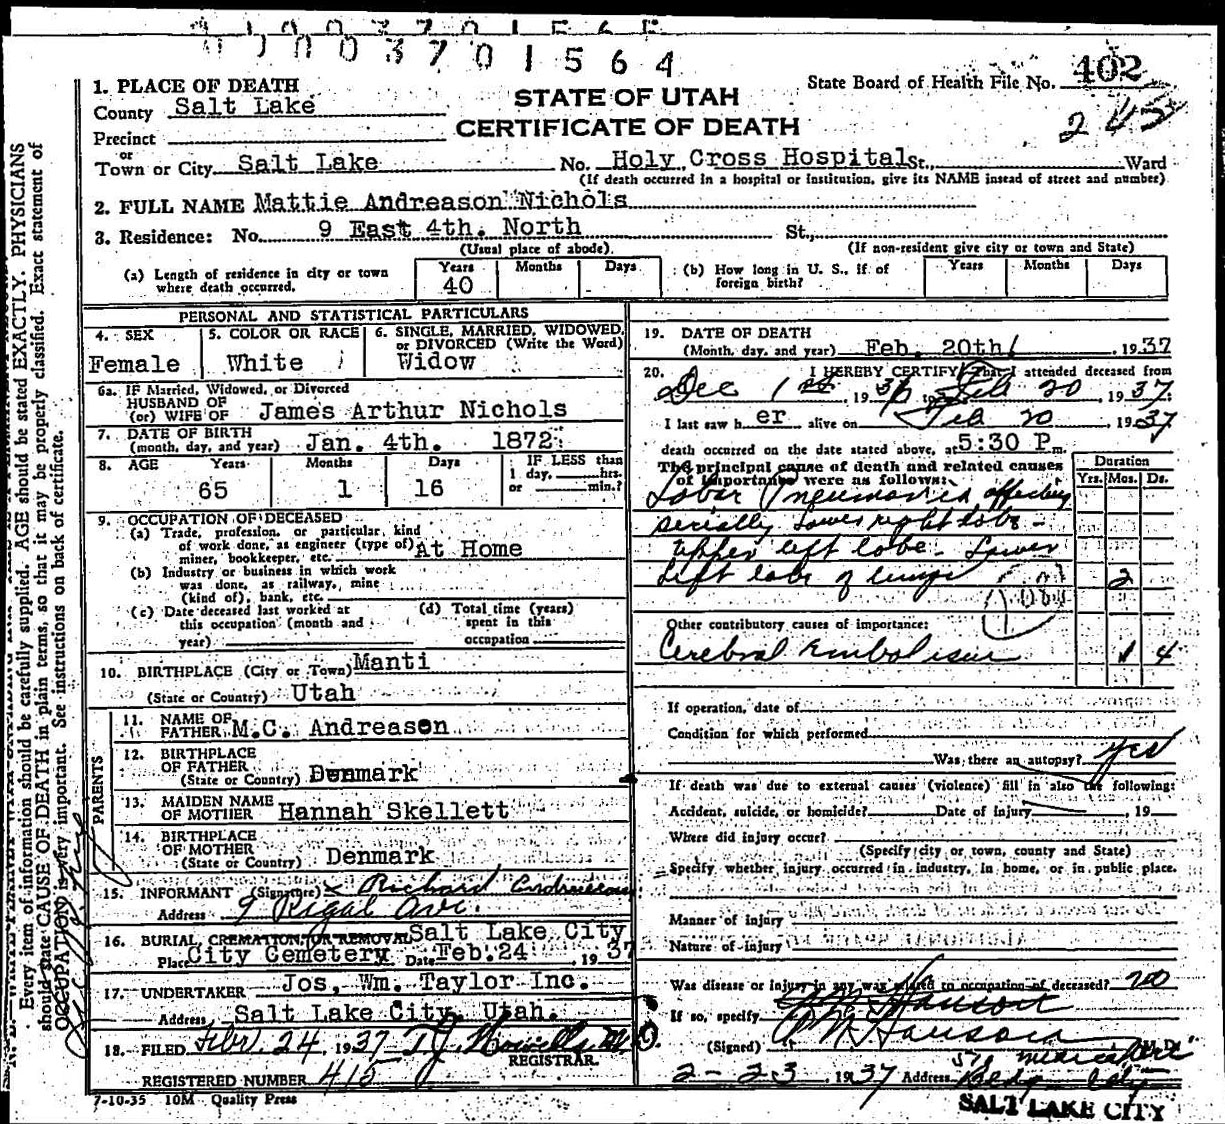 003701564
1. PLACE OF DEATH
County Salt Lake
State Board of Health File No. 402
STATE OF UTAH
CERTIFICATE OF DEATH
Precinct
or
Town or City Salt Lake No. Holy Cross Hospital St., Ward
(If death occurred in a hospital or institution, give its NAME instead of street and number)
2. FULL NAME Mattie Andreason Nichols
3. Residence: No. 9 East 4th. North St.,
(Usual place of abode) (If non-resident give city or town and State)
(a) Length of residence in city or town where death occurred. Years 40 Months Days
(b) How long in U. S., if of foreign birth? Years Months Days
PERSONAL AND STATISTICAL PARTICULARS
4. SEX Female
5. COLOR OR RACE White
6. SINGLE, MARRIED, WIDOWED, or DIVORCED (Write the Word) Widow
6a. IF Married, Widowed, or Divorced
HUSBAND OF
(or) WIFE OF James Arthur Nichols
7. DATE OF BIRTH
(month, day, and year) Jan. 4th. 1872
8. AGE Years 65 Months 1 Days 16
IF LESS than
1 day, hrs.
or min.?
9. OCCUPATION OF DECEASED
(a) Trade, profession, or particular, kind
of work done, as engineer (type of)
miner, bookkeeper, etc. At Home
(b) Industry or business in which work
was done, as railway, mine
(kind of), bank, etc.
(c) Date deceased last worked at
this occupation (month and
year)
(d) Total time (years)
spent in this
occupation
10. BIRTHPLACE (City or Town) Manti
(State or Country) Utah
PARENTS
11. NAME OF
FATHER M.C. Andreason
12. BIRTHPLACE
OF FATHER
(State or Country) Denmark
13. MAIDEN NAME
OF MOTHER Hannah Skellett
14. BIRTHPLACE
OF MOTHER
(State or Country) Denmark
15. INFORMANT (Signature) x Richard Andreason
Address 9 Rigal Ave.
16. BURIAL, CREMATION, OR REMOVAL Salt Lake City
Place City Cemetery Date Feb. 24 , 1937
17. UNDERTAKER Jos, Wm. Taylor Inc.
Address Salt Lake City, Utah.
18. FILED Febr. 24, 1937 T.J. Howells M.D.
REGISTRAR.
REGISTERED NUMBER 415
7-10-35 10M Quality Press
19. DATE OF DEATH
(Month, day, and year) Feb. 20th , 1937
20. I HEREBY CERTIFY, That I attended deceased from
Dec 1st, 1936, to Feb 20, 1937.
I last saw h er alive on Feb 20, 1937
death occurred on the date stated above, at 5:30 P m.
The principal cause of death and related causes
of importance were as follows:
Duration
Yrs. Mos. Ds.
Lobar Pneumonia affecting
serially lower right lobe -
upper left lobe - Lower
Left lobe of lungs 2
108
Other contributory causes of importance:
Cerebral Embolism 1 4
If operation, date of
Condition for which performed
Was there an autopsy? yes
If death was due to external causes (violence) fill in also the following:
Accident, suicide, or homicide? Date of injury , 19
Where did injury occur?
(Specify city or town, county and State)
Specify whether injury occurred in industry, in home, or in public place.
Manner of injury
Nature of injury
Was disease or injury in any way related to occupation of deceased? no
If so, specify
(Signed) M.D.
2-23 , 1937 Address
SALT LAKE CITY
Every item of information should be carefully supplied. AGE should be stated EXACTLY. PHYSICIANS
should state CAUSE OF DEATH in plain terms, so that it may be properly classified. Exact statement of
OCCUPATION is very important. See instructions on back of certificate.